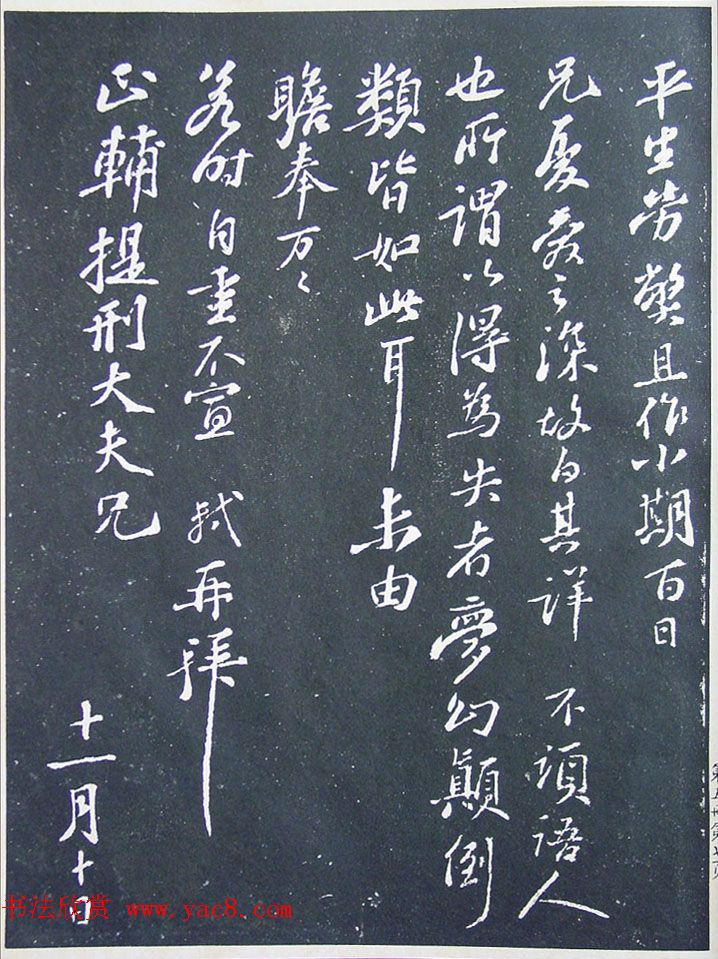 平生劳弊且作小期百日
兄忧爱之深故白其详 不须语人
也所謂以得為失者夢幻顛倒
類皆如此耳 未由
瞻奉万々
若时自重不宣 軾再拜
正輔提刑大夫兄
十一月十日
第五卅第七页
书法欣赏 www.yac8.com